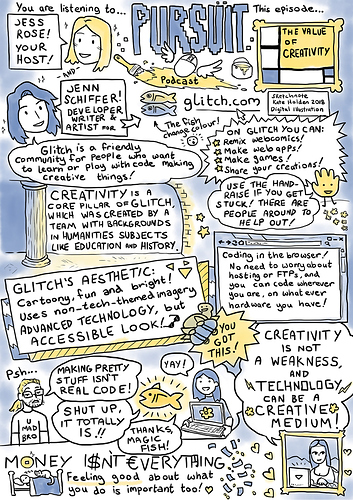 You are listening to...
PURSUIT.
This episode...
JESS
ROSE!
YOUR
HOST!
THE VALUE
OF
CREATIVITY
-AND-
Podcast
JENN
SCHIFFER!
DEVELOPER,
WRITER &
ARTIST FOR
glitch.com
Sketchnote
Kate Holden 2018
Digital illustration
The fish
change colour!
Glitch is a friendly
community for people who want
to learn or play with code making
creative things!
ON GLITCH YOU CAN:
Remix webcomics!
Make web apps!
Make games!
Share your creations!
CREATIVITY IS A
CORE PILLAR OF GLITCH,
WHICH WAS CREATED BY A
TEAM WITH BACKGROUNDS
IN HUMANITIES SUBJECTS
LIKE EDUCATION AND HISTORY.
USE THE HAND-
RAISE IF YOU GET
STUCK! THERE ARE
PEOPLE AROUND TO
HELP OUT!
Coding in the browser!
No need to worry about
hosting or FTPs, and
you can code wherever
you are, on whatever
hardware you have!
GLITCH'S AESTHETIC:
Cartoony, fun and bright!
Uses non-tech-themed imagery
ADVANCED TECHNOLOGY, but
ACCESSIBLE LOOK!
YOU
GOT
THIS!
CREATIVITY
IS NOT
A WEAKNESS,
AND
TECHNOLOGY
CAN BE A
CREATIVE
MEDIUM!
Psh...
MAKING PRETTY
STUFF ISN'T
REAL CODE!
YAY!
SHUT UP,
IT TOTALLY
IS!!
MAD
BRO
THANKS,
MAGIC
FISH!
MONEY I$NT €VERYTHING.
Feeling good about what
you do is important too!